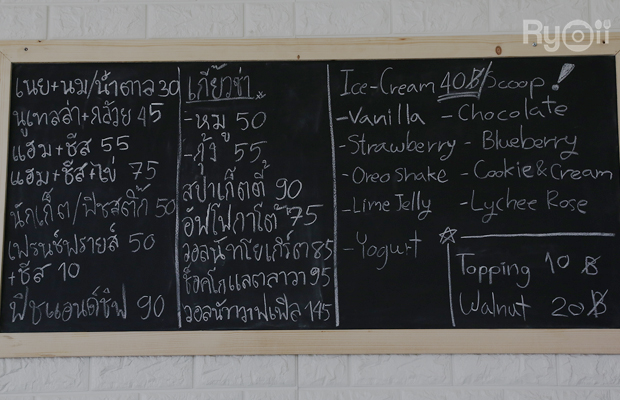 Ryoii
เนย+นม/น้ำตาล 30
นูเทลล่า+กล้วย 45
แฮม+ชีส 55
แฮม+ชีส+ไข่ 75
นักเก็ต/ฟิชสติ๊ก 50
เฟรนช์ฟรายส์ 50
+ชีส 10
ฟิชแอนด์ชิฟ 90
เกี๊ยวซ่า
-หมู 50
-กุ้ง 55
สปาเก็ตตี้ 90
อัฟโฟกาโต้ 75
วอลนัทโยเกิร์ต 85
ช็อคโกแลตลาวา 95
วอลนัทวาฟเฟิล 145
Ice-Cream 40฿/Scoop!
-Vanilla - Chocolate
-Strawberry - Blueberry
-Oreo Shake - Cookie & Cream
-Lime Jelly - Lychee Rose
-Yogurt
Topping 10 ฿
Walnut 20฿